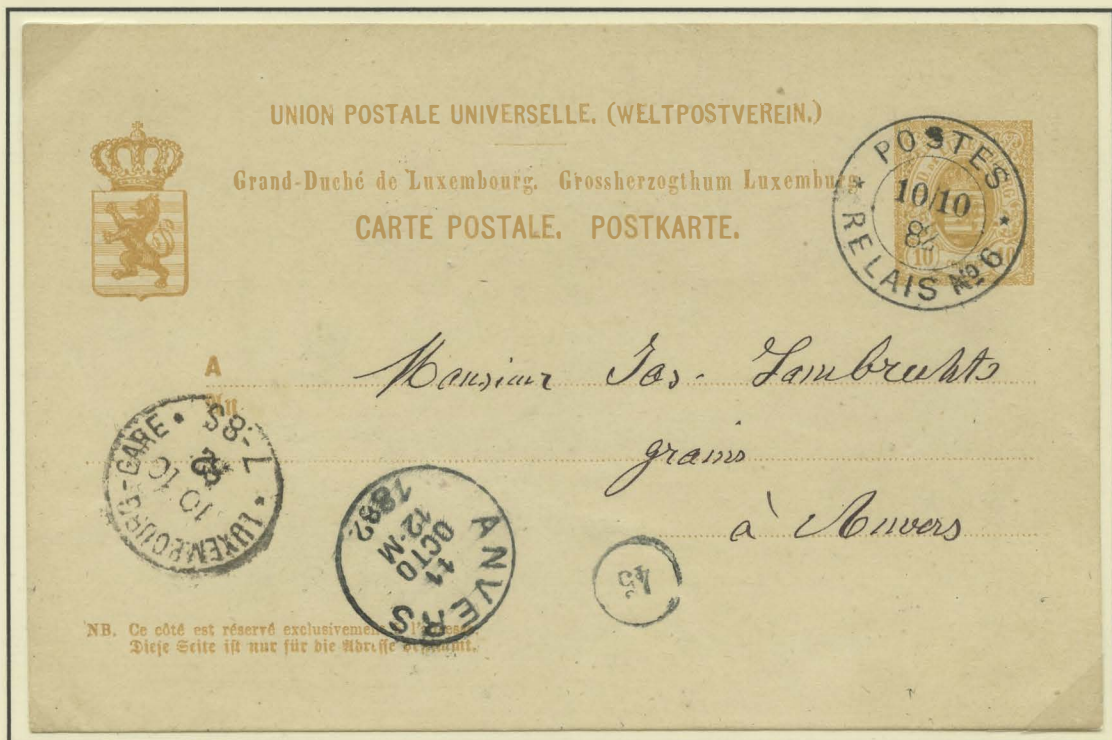 UNION POSTALE UNIVERSELLE. (WELTPOSTVEREIN.)
Grand-Duché de Luxembourg. Grossherzogthum Luxemburg
CARTE POSTALE. POSTKARTE.
POSTES
10/10
82
RELAIS No 6
10 10
A
Monsieur Jos. Lambrechts
An
grains
à Anvers
LUXEMBOURG-GARE * 7-8S *
10 10
82
ANVERS
11
OCTO
12-M
1882
45
NB. Ce côté est réservé exclusivement l'adresse.
Diese Seite ist nur für die Adresse bestimmt.